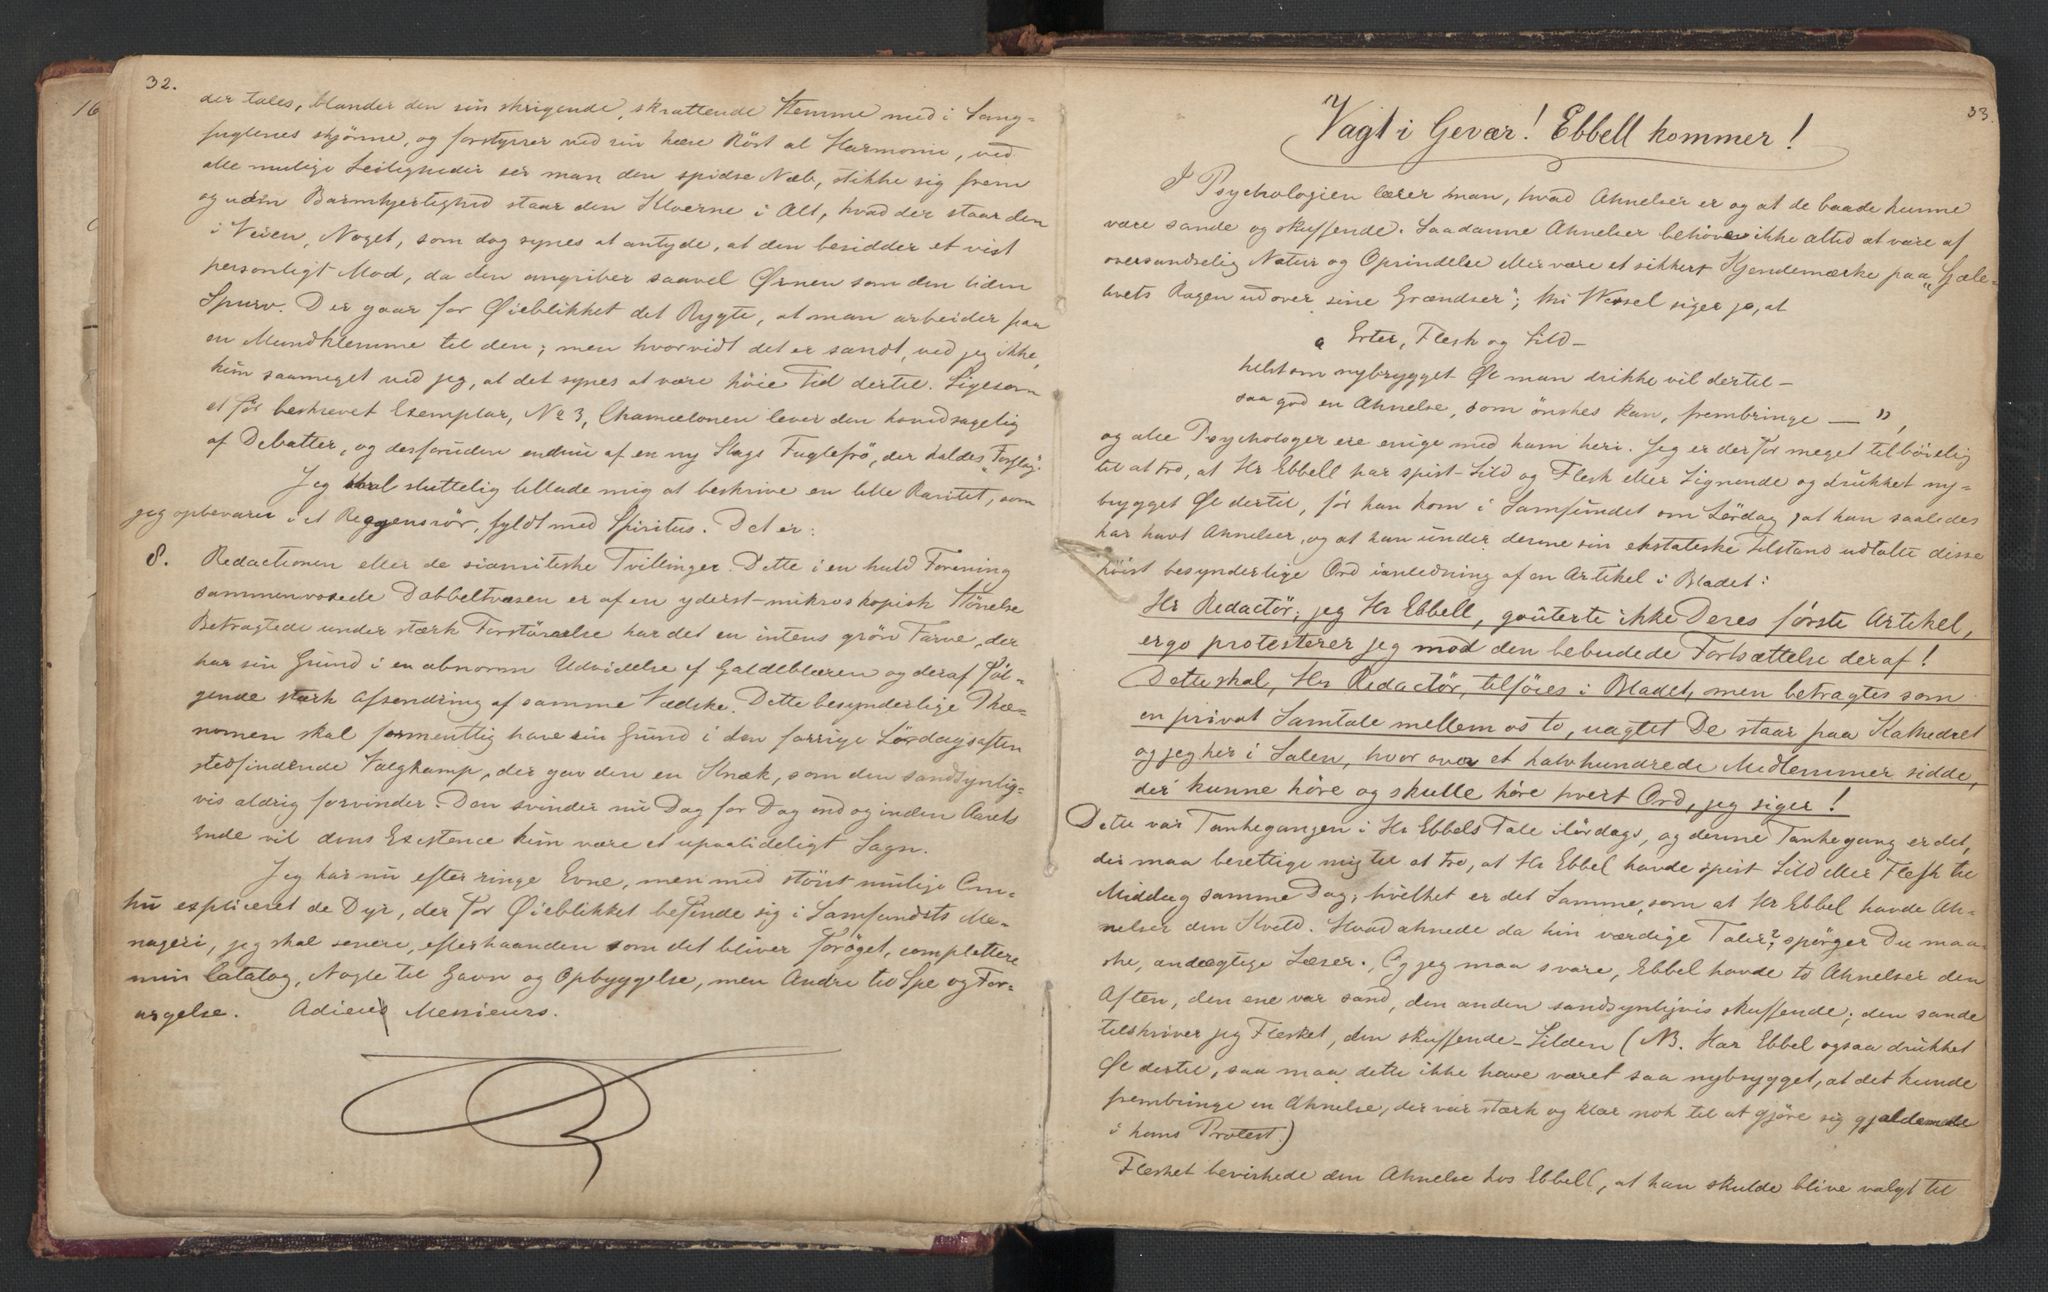 32.
der tales, blander den sin skrigende, skrattende Stemme med i Sang-
fuglenes skjønne, og forstyrrer ved sin hæse Röst al Harmonie, ved
alle mulige Leiligheder ser man den spidse Næb, stikke sig frem
og uden Barmhjertighed staar den Kloerne i Alt, hvad der staar den
i Veien, Noget, som dog synes at antyde, at den besidder et vist
personligt Mod, da den angriber saavel Ørnen som den liden
Spurv. Der gaar for Øieblikket det Rygte, at man arbeider paa
en Mundklemme til den; men hvorvidt det er sandt, ved jeg ikke,
kun saameget ved jeg, at det synes at være höie Tid dertil. Ligesom
et för beskrevet Exemplar, No 3, Chamæleonen lever den hovedsagelig
af Debatter, og desforuden endnu af en ny Slags Fuglefrö, der kaldes „Forslag".
Jeg skal sluttelig tillade mig at beskrive en lille Raritet, som
jeg opbevarer i et Reagensrör, fyldt med Spiritus. Det er:
8. Redactionen eller de siamitiske Tvillinger. Dette i en huld Forening
sammenvoxede Dobbeltvæsen er af en yderst mikroskopisk Störrelse
Betragtede under stærk Forstörrelse har det en intens grön Farve, der
har sin Grund i en abnorm Udvidelse af Galdeblæren og deraf föl-
gende stærk Afsondring af samme Vædske. Dette besynderlige Phæ-
nomen skal formentlig have sin Grund i den forrige Lørdagsaften
stedfindende Valgkamp, der gav den en Knæk, som den sandsynlig-
vis aldrig forvinder. Den svinder nu Dag for Dag ind og inden Aarets
Ende vil dens Existence kun være et upaalideligt Sagn.
Jeg har nu efter ringe Evne, men med störst mulige Om-
hu expliceret de Dyr, der for Øieblikket befinde sig i Samfundets Me-
nageri, jeg skal senere, efterhaanden som det bliver foröget, complettere
min Catalog, Nogle til Gavn og Opbyggelse, men Andre til Spe og For-
argelse. Adieu Messieurs.
33.
Vagt i Gevær! Ebbell kommer!
I Psychologien lærer man, hvad Ahnelser er og at de baade kunne
være sande og skuffende. Saadanne Ahnelser behöver ikke altid at være af
oversandselig Natur og Oprindelse eller være et sikkert Kjendemærke paa „Sjæle-
livets Ragen ud over sine Grændser"; thi Wessel siger jo, at
„ Erter, Flesk og Sild –
helst om nybrygget Øl man drikke vil dertil –
saa god en Ahnelse, som önskes kan, frembringe — ",
og alle Psychologer ere enige med ham heri. Jeg er derfor meget tilböielig
til at tro, at Hr Ebbell har spist Sild og Flesk eller Lignende og drukket ny-
brygget Øl dertil, för han kom i Samfundet om Lørdag, at han saaledes
har havt Ahnelser, og at han under denne sin ekstatiske Tilstand udtalte disse
höist besynderlige Ord i anledning af en Artikel i Bladet:
Hr Redactör; jeg Hr Ebbell, goûterte ikke Deres förste Artikel,
ergo protesterer jeg mod den bebudede Fortsættelse deraf!
Dette skal, Hr Redactör, tilföies i Bladet, men betragtes som
en privat Samtale mellem os to, uagtet De staar paa Kathedret
og jeg her i Salen, hvor over et halvhundrede Medlemmer sidde,
der kunne höre og skulle höre hvert Ord, jeg siger!
Dette var Tankegangen i Hr Ebbels Tale ilördags, og denne Tankegang er det,
der maa berettige mig til at tro, at Hr Ebbel havde spist Sild eller Flesk til
Middag samme Dag, hvilket er det Samme, som at Hr Ebbel havde Ah-
nelser den Kveld. Hvad ahnede da hin værdige Taler? spörger Du maa-
ske, andægtige Læser. Og jeg maa svare, Ebbel havde to Ahnelser den
Aften, den ene var sand, den anden sandsynligvis skuffende; den sande
tilskriver jeg Flesket, den skuffende – Silden (NB. Har Ebbel ogsaa drukket
Øl dertil, saa maa dette ikke have været saa nybrygget, at det kunde
frembringe en Ahnelse, der var stærk og klar nok til at gjöre sig gjældende
i hans Protest.)
Flesket bevirkede den Ahnelse hos Ebbell, at han skulde blive valgt til